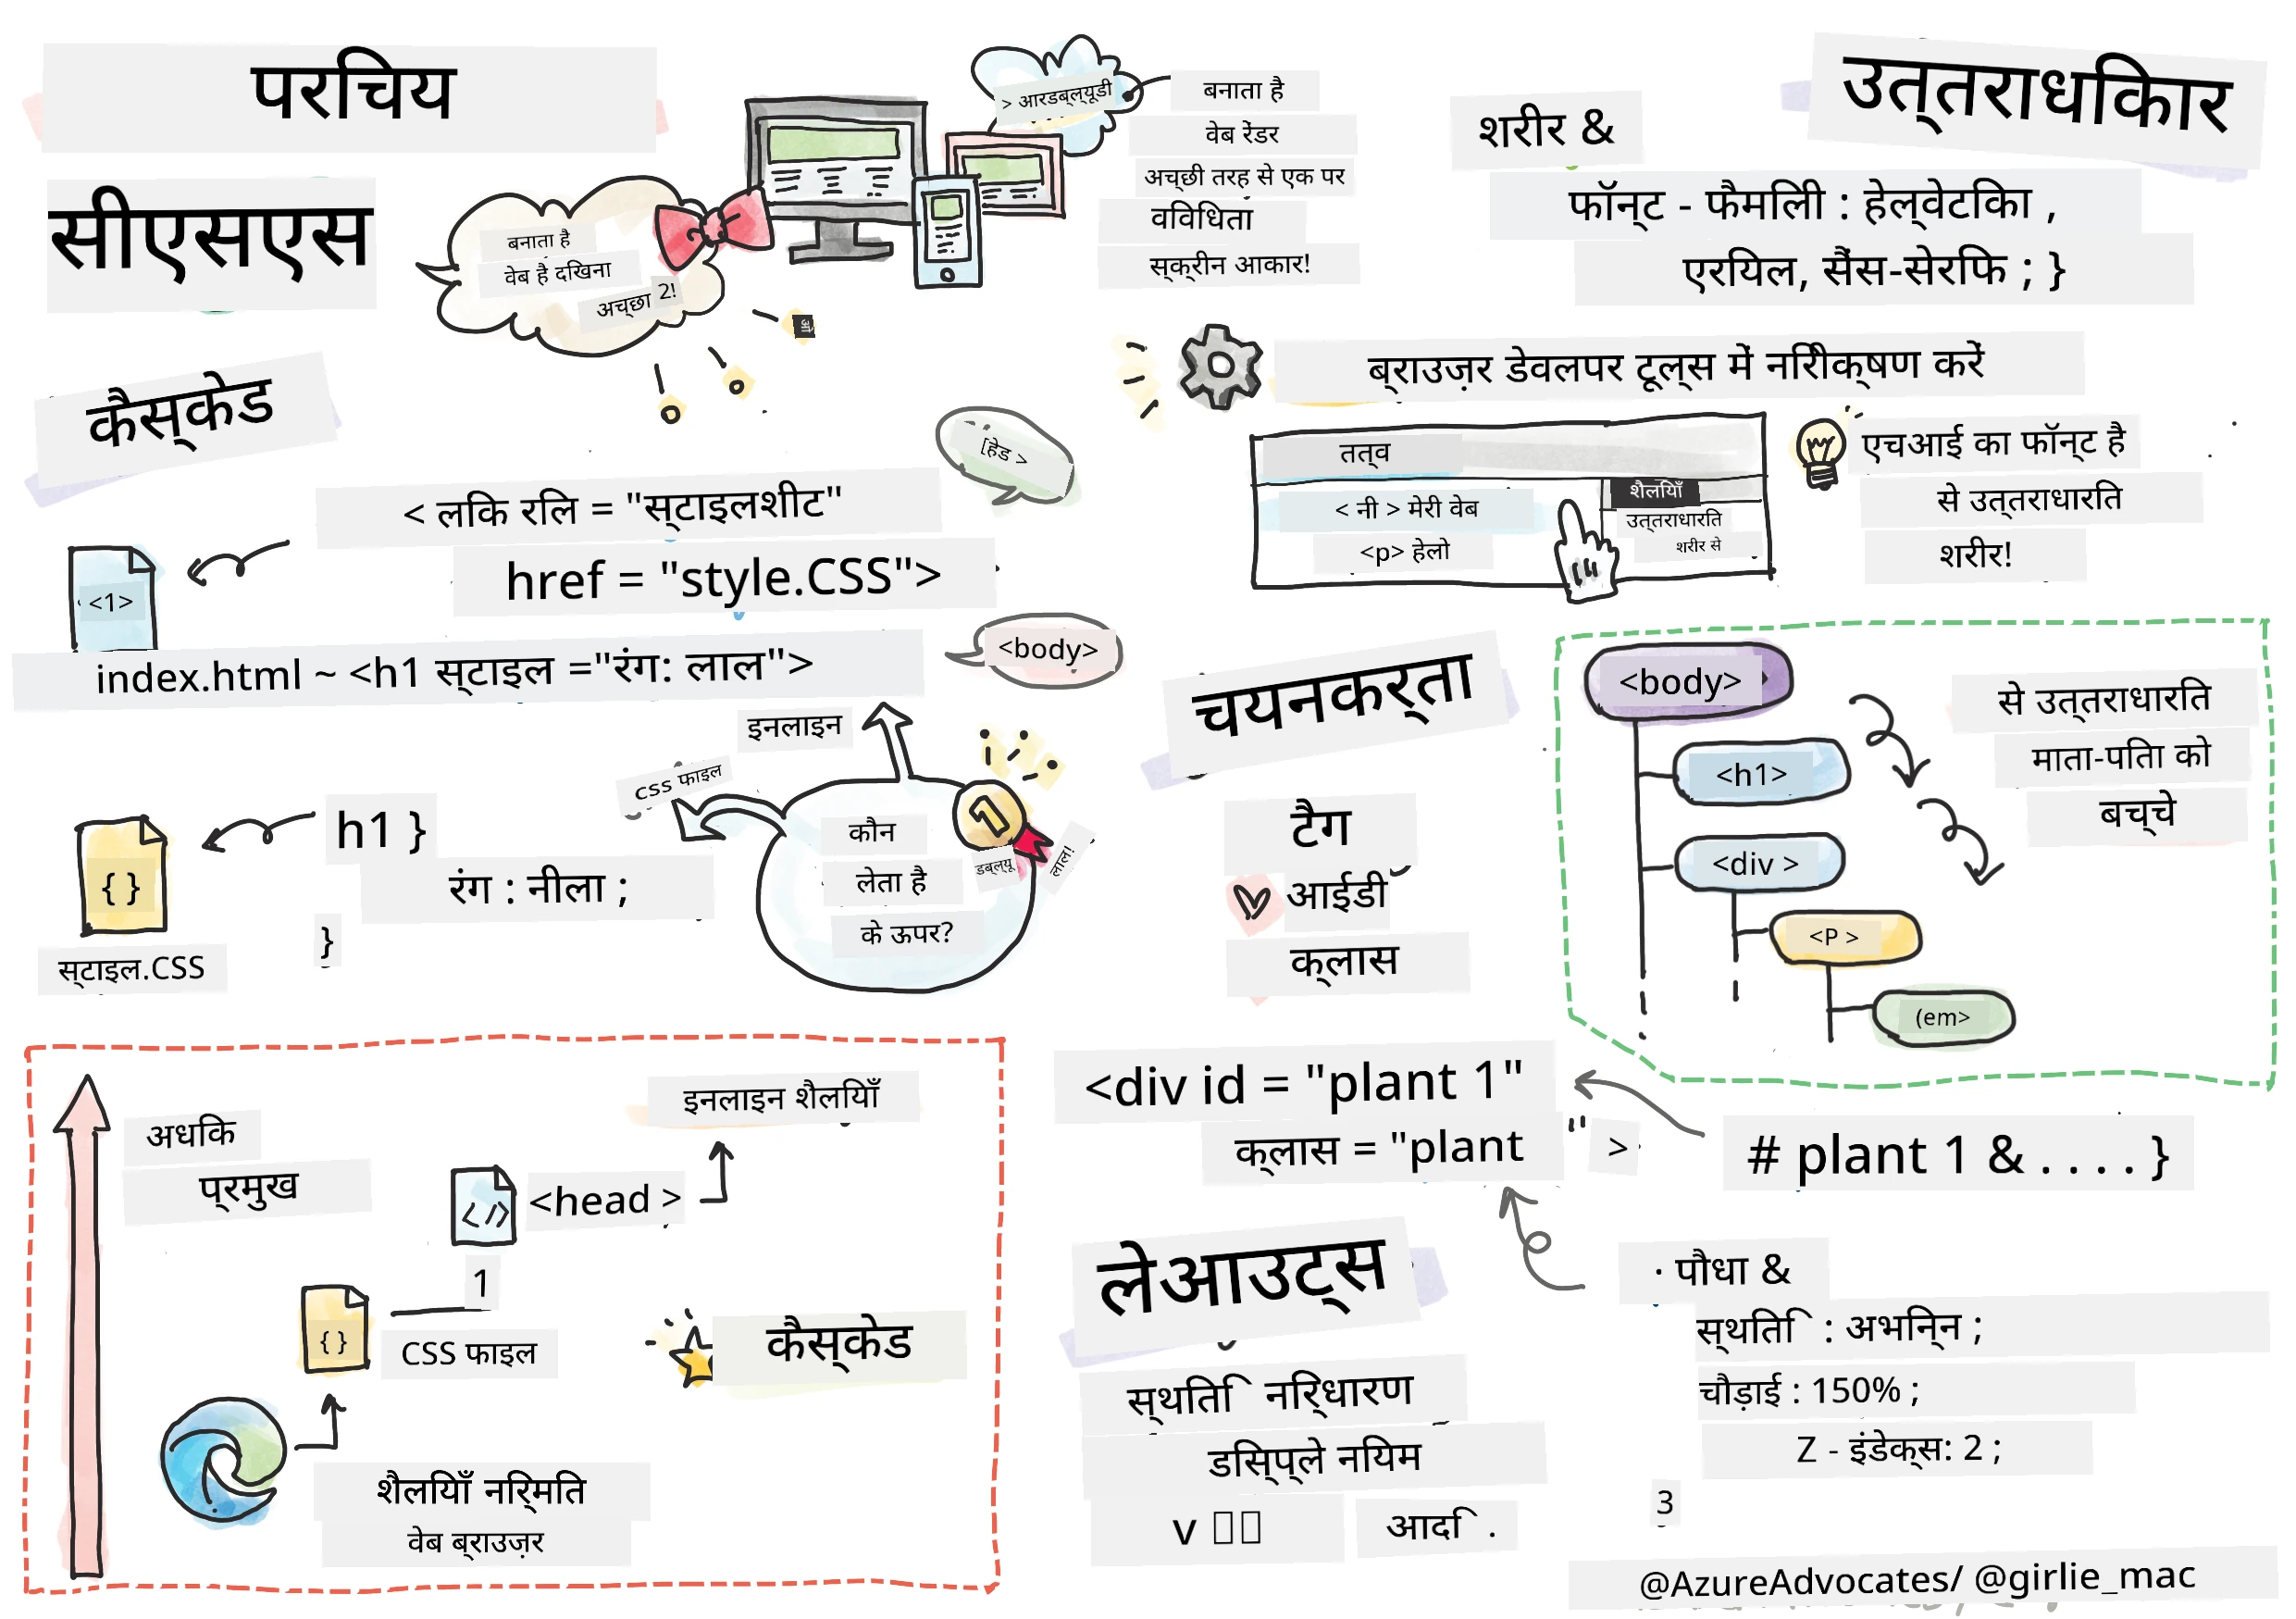 परिचय
सीएसएस
बनाता है
वेब है दिखना
अच्छा 2!
> आरडब्ल्यूडी
बनाता है
वेब रेंडर
अच्छी तरह से एक पर
विविधता
स्क्रीन आकार!
कैस्केड
[हेड >
< लिंक रिल = "स्टाइलशीट"
href = "style.CSS">
<1>
index.html ~ <h1 स्टाइल ="रंग: लाल">
<body>
इनलाइन
css फाइल
h1 }
रंग : नीला ;
}
{ }
स्टाइल.CSS
कौन
लेता है
के ऊपर?
1
डब्ल्यू
लाल!
अधिक
प्रमुख
इनलाइन शैलियाँ
</>
<head >
1
{ }
CSS फाइल
कैस्केड
शैलियाँ निर्मित
वेब ब्राउज़र
उत्तराधिकार
शरीर &
फॉन्ट - फैमिली : हेल्वेटिका ,
एरियल, सैंस-सेरिफ ; }
ब्राउज़र डेवलपर टूल्स में निरीक्षण करें
तत्व
< नी > मेरी वेब
<p> हेलो
शैलियाँ
उत्तराधारित
शरीर से
एचआई का फॉन्ट है
से उत्तराधारित
शरीर!
चयनकर्ता
टैग
आईडी
क्लास
<body>
<h1>
<div >
<P >
(em>
से उत्तराधारित
माता-पिता को
बच्चे
<div id = "plant 1"
क्लास = "plant " >
# plant 1 & . . . . }
· पौधा &
स्थिति : अभिन्न ;
चौड़ाई : 150% ;
Z - इंडेक्स: 2 ;
3
लेआउट्स
स्थिति निर्धारण
डिस्प्ले नियम
v
आदि .
@AzureAdvocates/ @girlie_mac